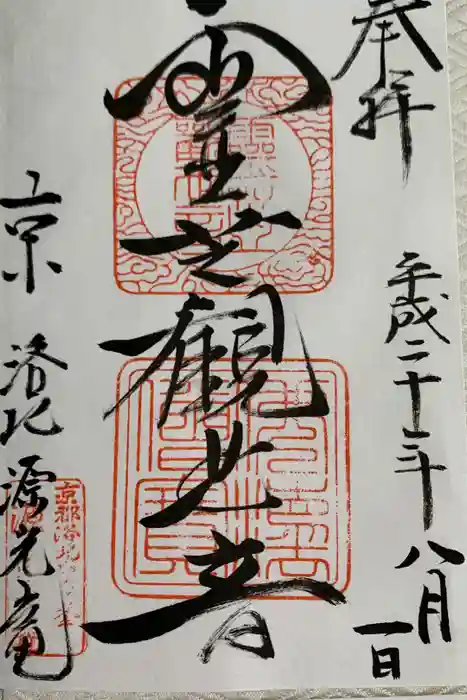 奉拝
平成二十二年八月一日
霊芝觀世音
京洛北源光庵
京都洛北